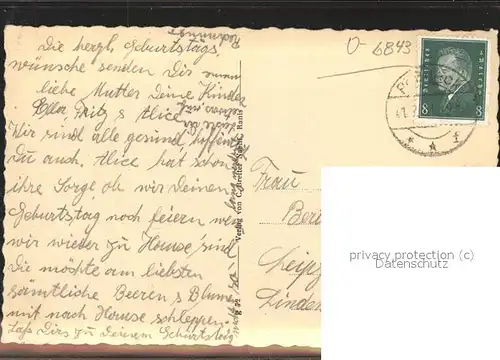 Die herzl. Geburtstags
wünsche senden Dir
liebe Mutter Deine Kinder
Ella Fritz & Alice
Wir sind alle gesund hoffentl.
Du auch. Alice hat schon
ihre Sorge ob wir Deinen
Geburtstag noch feiern wen
wir wieder zu Hause sind
Die möchte am liebsten
sämtliche Beeren & Blumen
mit nach Hause schleppen.
Lass Dirs zu Deinem Geburtstag
Verlag von C. Ranis
0-6843
Deutsches Reich
8 8
Frau
Leipz
Linden
privacy protection (c)
Datenschutz